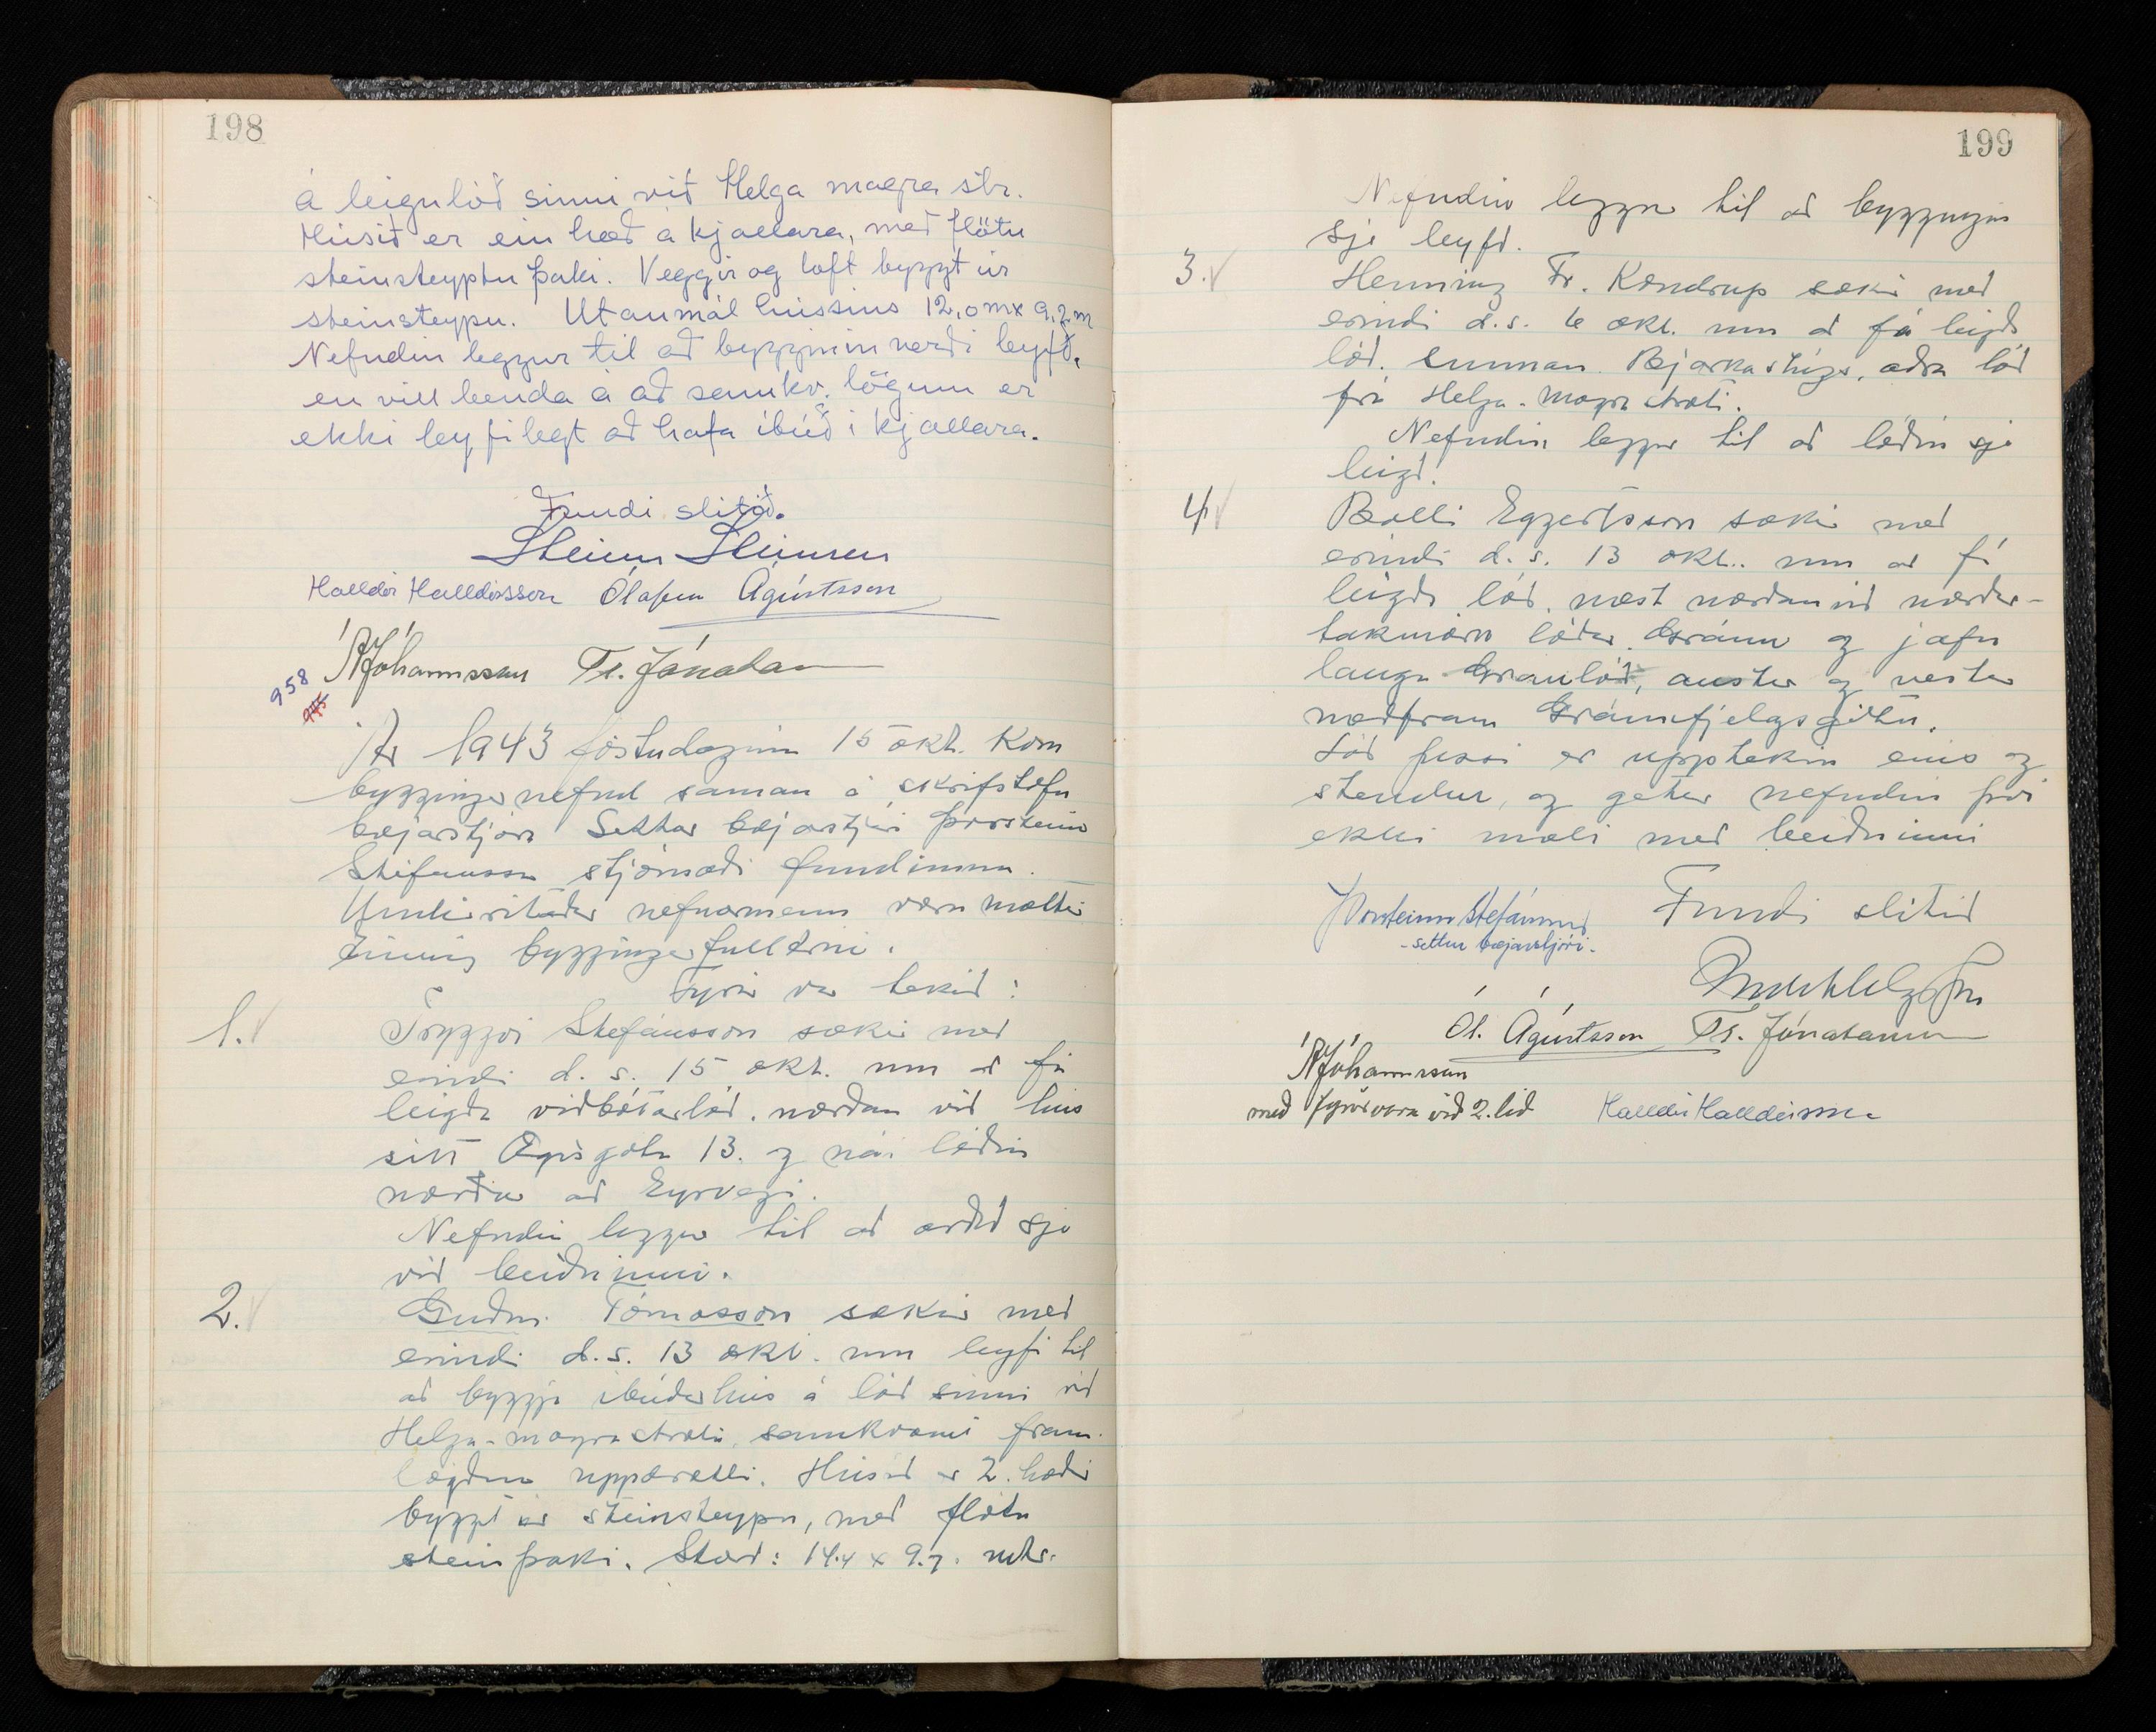 198
á leigulóð sinni við Helga magra str.
Húsið er ein hæð á kjallara, með flötu
steinsteyptu þaki. Veggir og loft byggt úr
steinsteypu. Utanmál hússins 12,0 m x 9,2 m
Nefndin leggur til að byggingin verði leyfð,
en vill benda á að samkv. lögum er
ekki leyfilegt að hafa íbúð í kjallara.
Fundi slitið.
Steinn Steinsen
Halldór Halldórsson Ólafur Ágústsson
Jóhannsson Tr. Jónatan
958
Ár 1943 föstudaginn 15 okt. kom
bygginganefnd saman á skrifstofu
bæjarstjóra Settur bæjarstjóri Þorsteinn
Stefánsson stjórnaði fundinum.
Undirritaðir nefndarmenn voru mættir
einnig byggingafulltrúi.
Fyrir var tekið:
1.
Tryggvi Stefánsson sækir með
erindi d. s. 15 okt. um að fá
leigða viðbótarlóð. norðan við hús
sitt Ægisgötu 13. og nái lóðin
norður að Eyrvegi.
Nefndin leggur til að orðið sje
við beiðninni.
2.
Guðm. Tómasson sækir með
erindi d.s. 13 okt. um leyfi til
að byggja íbúðarhús á lóð sinni við
Helga-magra stræti, samkvæmt fram-
lögðum uppdrætti. Húsið er 2. hæðir
byggt úr steinsteypu, með flötu
steinþaki. Stærð: 14.4 x 9.7. mtr.
199
Nefndin leggur til að byggingin
sje leyfð.
3.
Henning Fr. Kondrup sækir með
erindi d.s. 6 okt. um að fá leigða
lóð. sunnan Bjarkastígs, aðra lóð
frá Helga-magra stræti.
Nefndin leggur til að lóðin sje
leigð.
4
Balli Eggertsson sækir með
erindi d. s. 13 okt.. um að fá
leigða lóð. næst norðan við norður-
takmörk lóðar Gránu og jafn
langa Gránulóð, austur og vestur
meðfram Gránufjelagsgötu.
Lóð þessi er upptekin eins og
stendur, og getur nefndin því
ekki mælt með beiðninni
Þorsteinn Stefánsson Fundi slitið
- settur bæjarstjóri -
Ól. Ágústsson Tr. Jónatansson
Jóhannsson
með fyrirvara við 2. lið Halldór Halldórsson